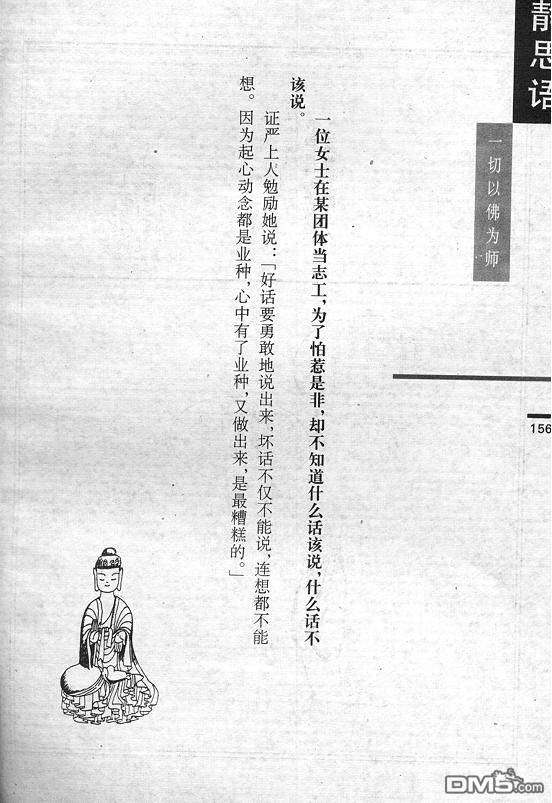 静思语
一切以佛为师
156
一位女士在某团体当志工，为了怕惹是非，却不知道什么话该说，什么话不
该说。
证严上人勉励她说：「好话要勇敢地说出来，坏话不仅不能说，连想都不能
想。因为起心动念都是业种，心中有了业种，又做出来，是最糟糕的。」
DM5.com